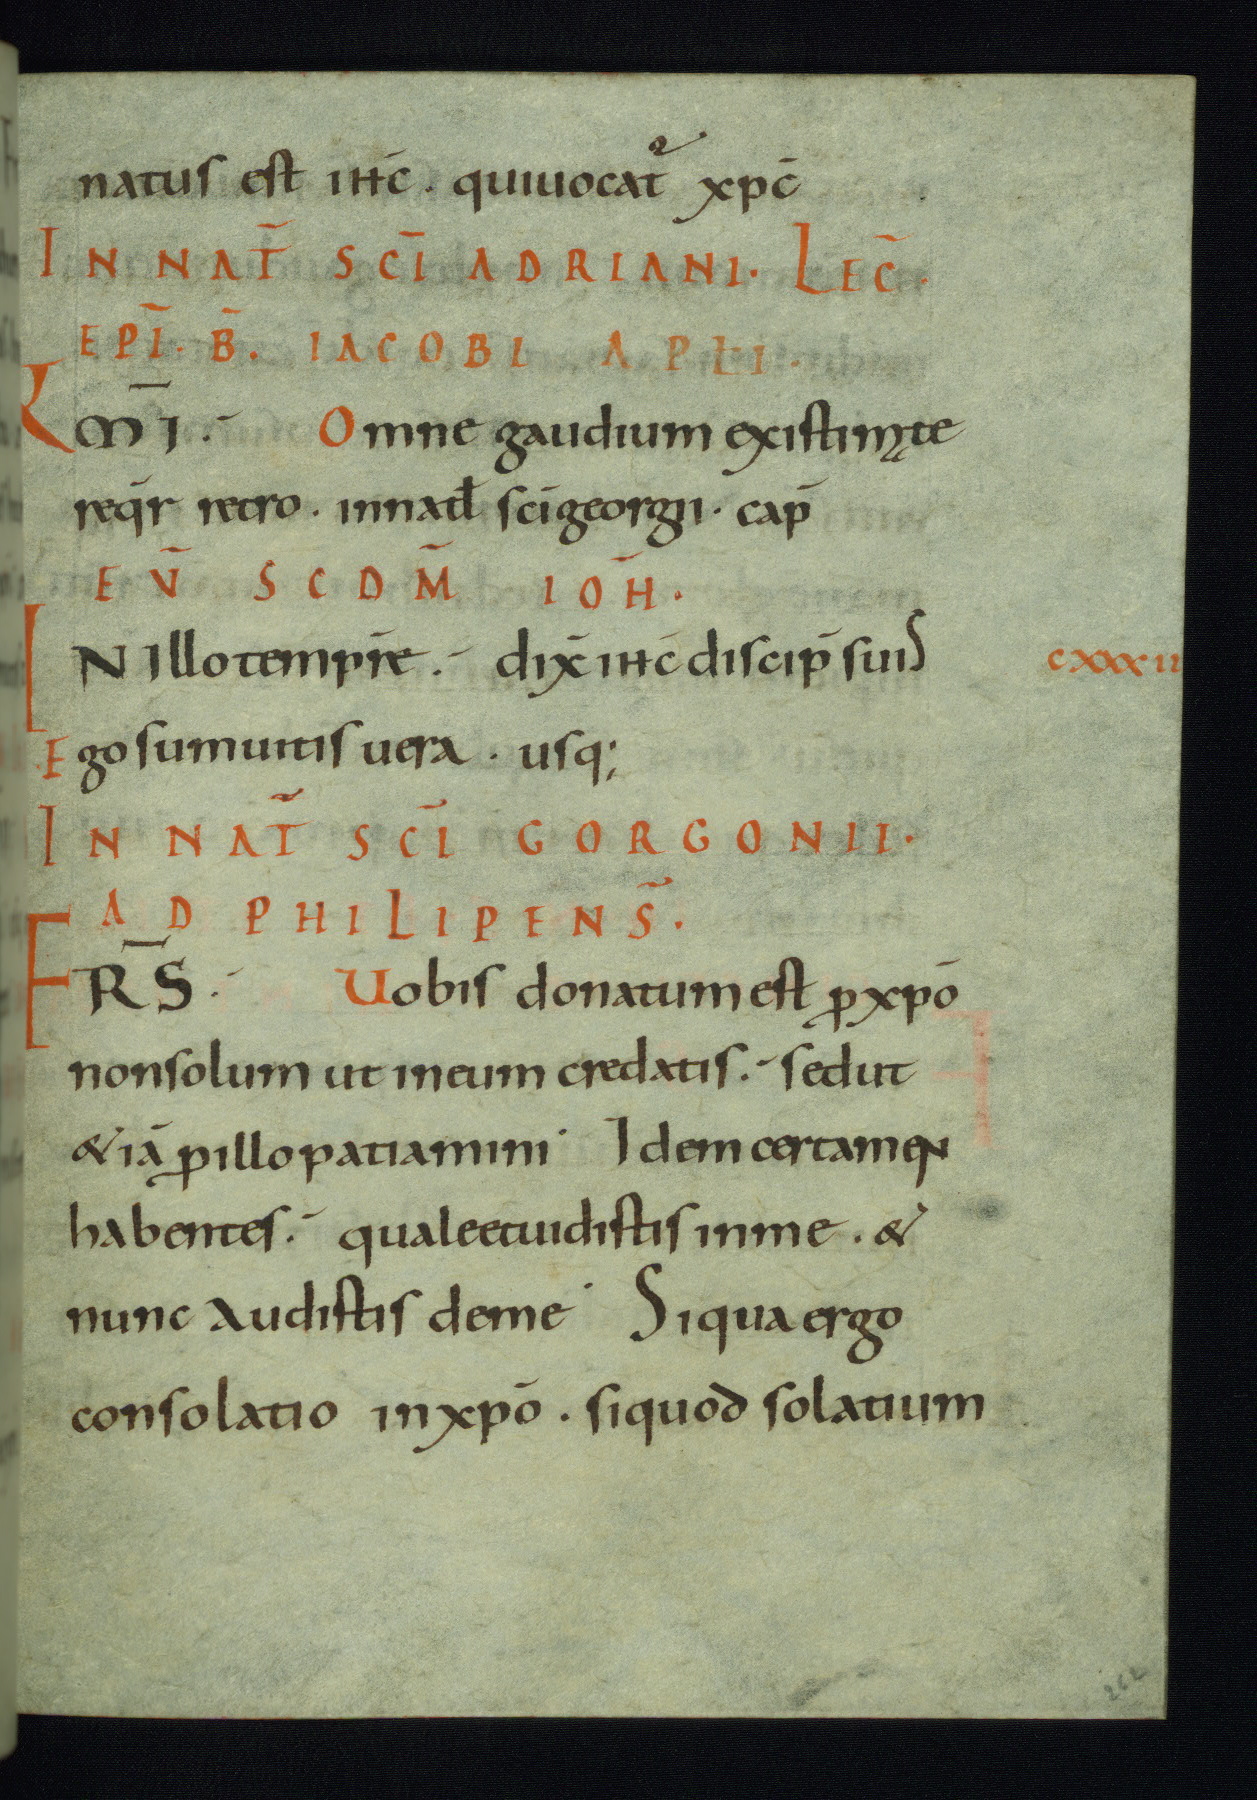 natus est ihc̄. quiuocat᷑ xpc̄
IN NAT̄ SCĪ ADRIANI. LEC̄.
EPĪ. B̄. IACOBI APƚI.
KM̄I. Omne gaudium existimate
req̄r retro. innatƚ scīgeorgii. cap̄
EV̄ SCDM̄ IOH̄.
IN Illotempr̄e. dix̄ ihc̄ discip̄ suis
cxxxii
Ego sumuitis uera. usq;
IN NAT̄ SCĪ GORGONII.
AD PHILIPENS̄.
FRS̄. Uobis donatum est ꝓ xpō
nonsolum ut ineum credatis. sedut
&iā ꝓillo patiamini Idem certamen
habentes. qualeetuidistis inme. &
nunc audistis deme Siqua ergo
consolatio inxpō. siquod solatium
262